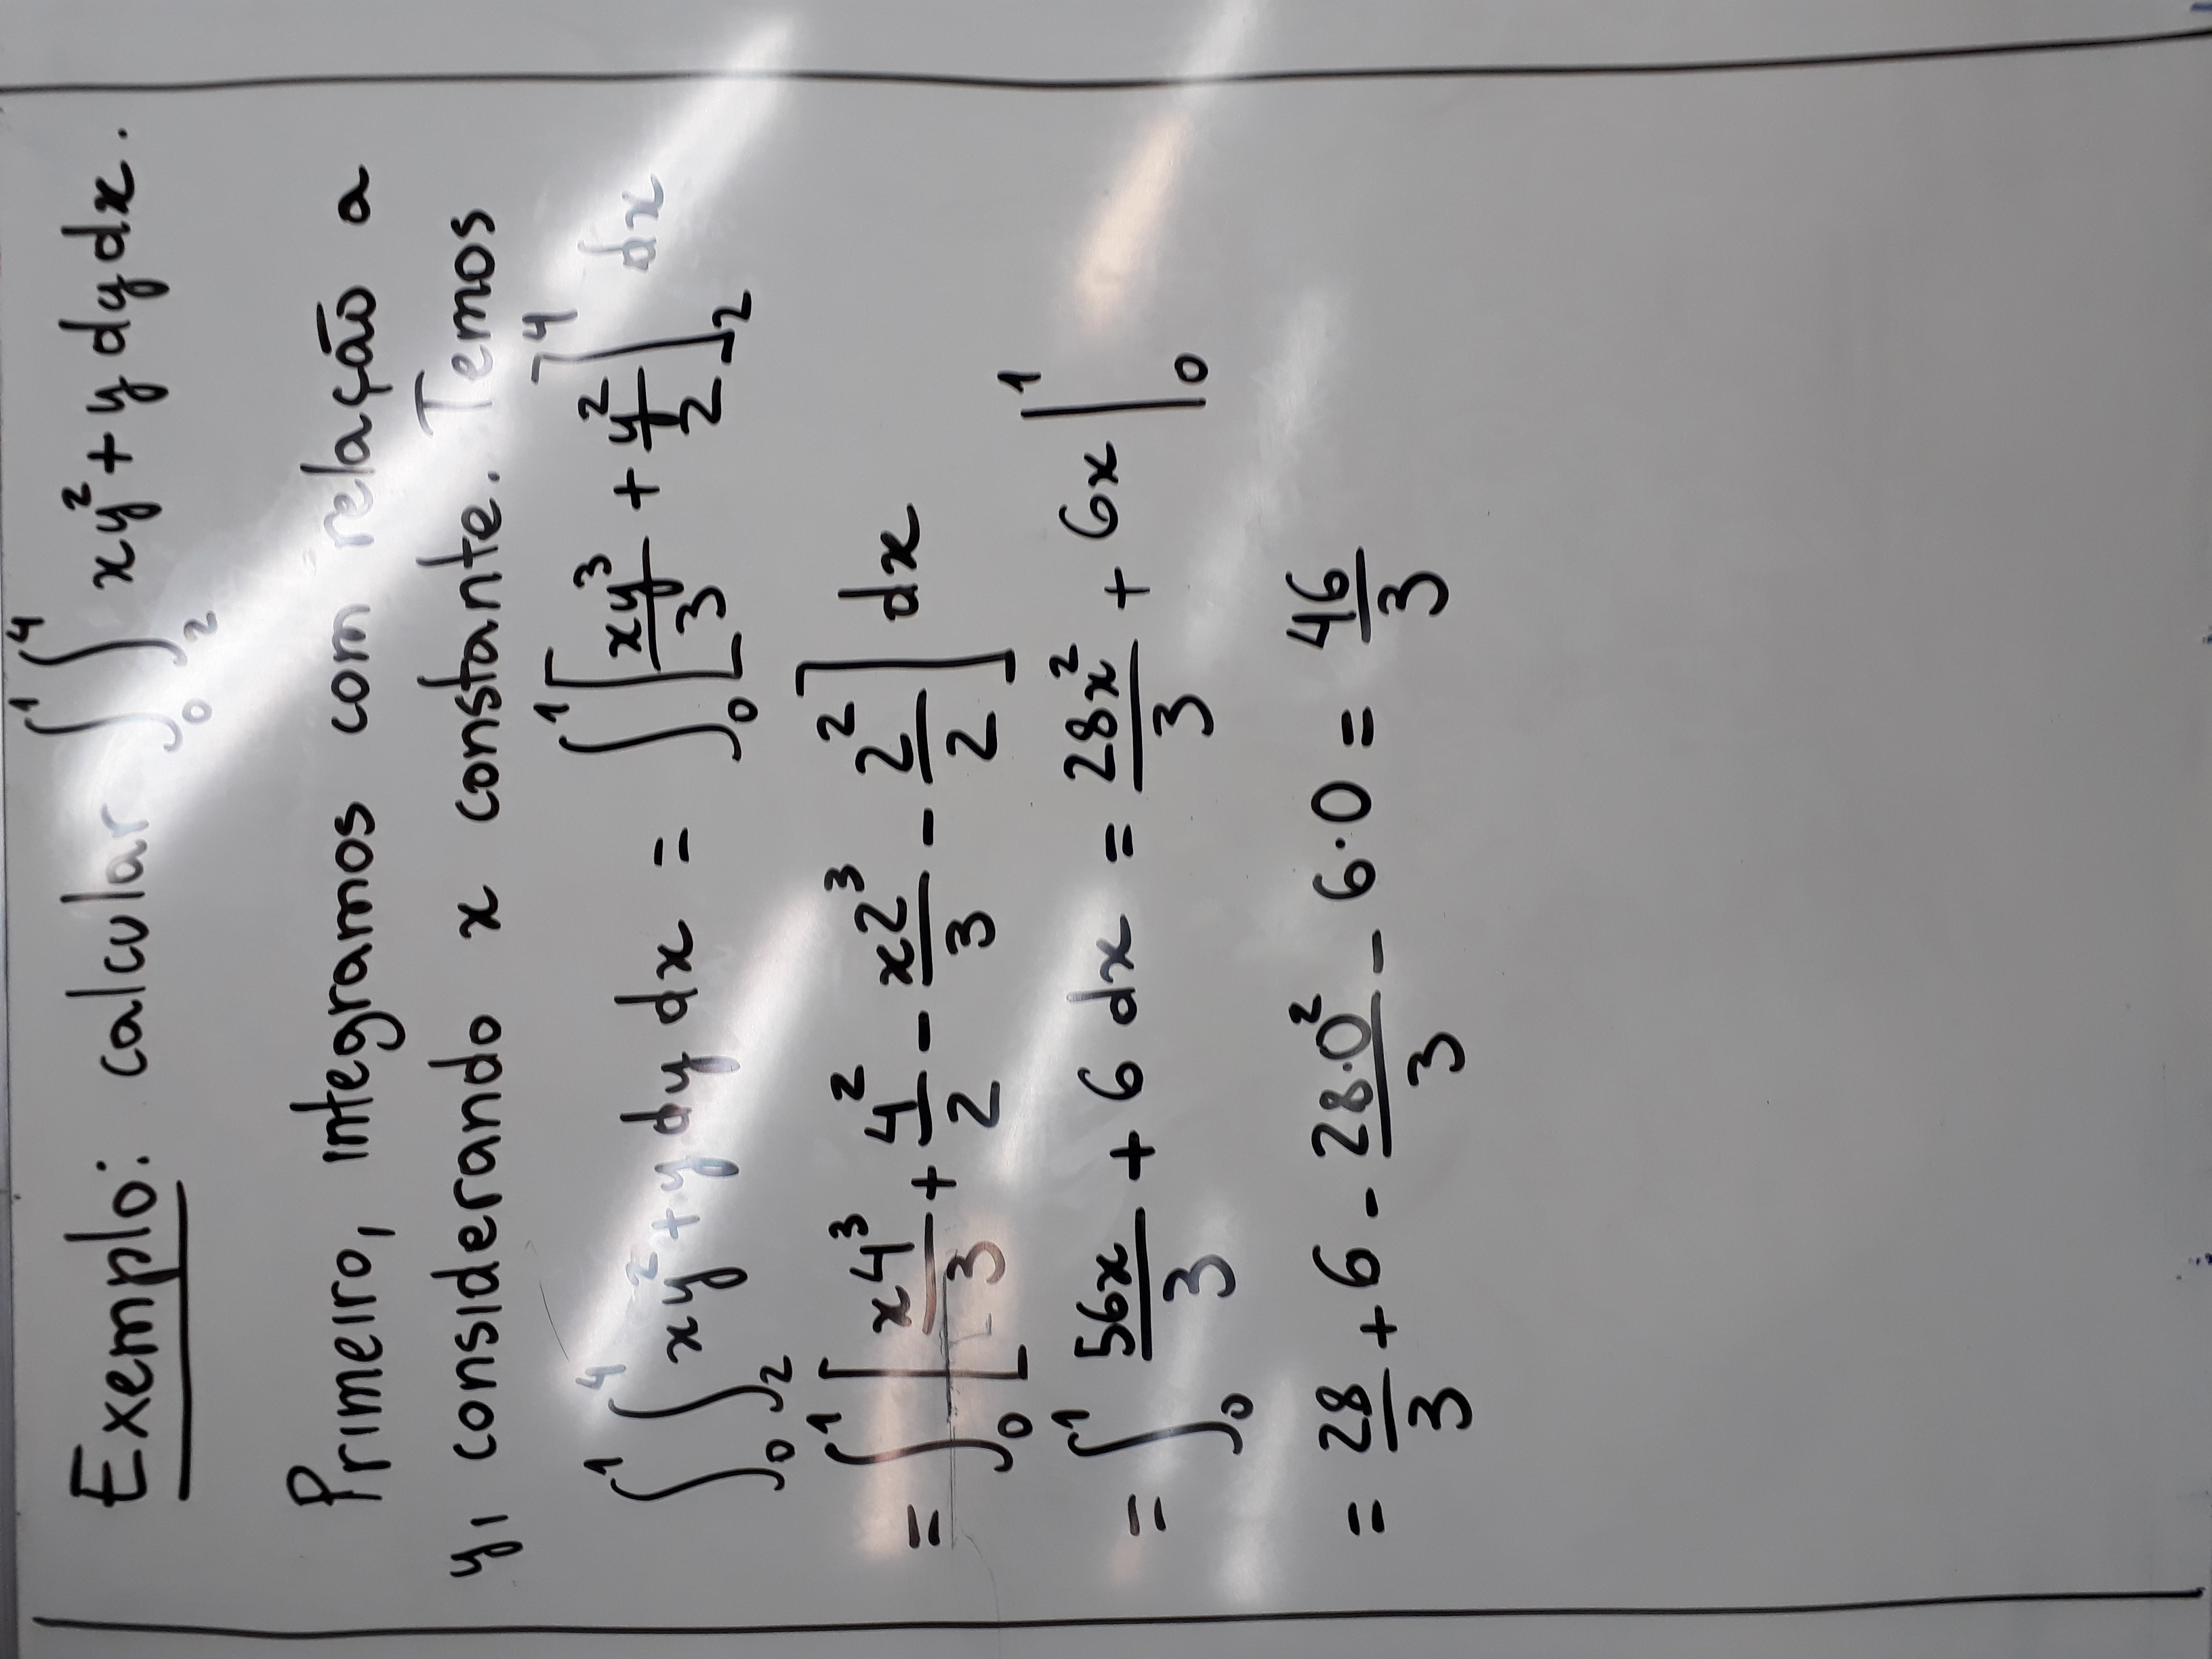 Exemplo: calcular ∫₀¹ ∫₂⁴ xy² + y dy dx.
Primeiro, integramos com relação a
y, considerando x constante. Temos
∫₀¹ ∫₂⁴ xy² + y dy dx = ∫₀¹ [xy³/3 + y²/2]₂⁴ dx
= ∫₀¹ [x4³/3 + 4²/2 - x2³/3 - 2²/2] dx
= ∫₀¹ 56x/3 + 6 dx = 28x²/3 + 6x |₀¹
= 28/3 + 6 - 28·0²/3 - 6·0 = 46/3